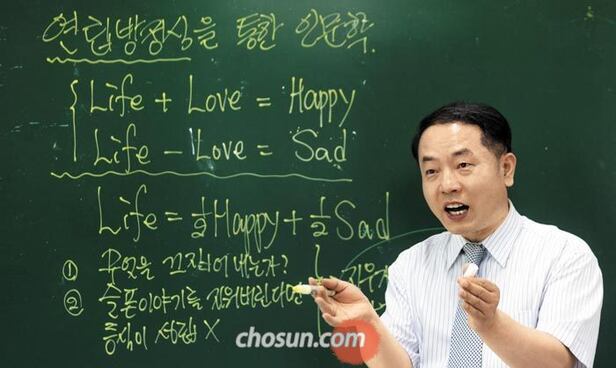 연립방정식을 통한 인문학.
Life + Love = Happy
Life - Love = Sad
Life = 1/2 Happy + 1/2 Sad
① 무엇을 끄집어 내는가?
② 슬픈이야기를 지워버린다면
등식이 성립 X
지우
chosun.com